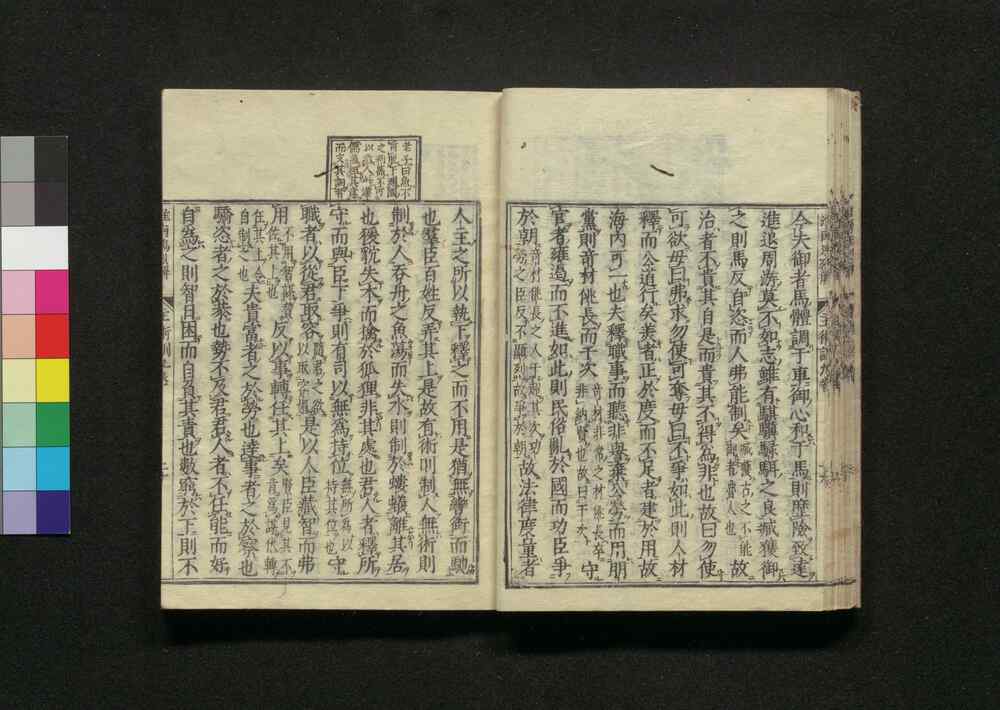 今夫御者馬體調于車御心和于馬則歷險致遠
進退周游莫不如志雖有騏驥騄駬之良臧獲御
之則馬反自恣而人弗能制矣臧獲古之不能御者魯人也故
治者不貴其自是而貴其不得爲非也故曰勿使
可欲毋曰弗求勿使可奪毋曰不爭如此則人材
釋而公道行矣美者正於度而不足者建於用故
海内可一也夫釋職事而聽非譽棄公勞而用朋
黨則奇材佻長而干次奇材非常之材佻長卒非純賢也故曰干次守
官者雍遏而不進如此則民俗亂於國而功臣爭
於朝奇材佻長之人干超其次功勞之臣反不顯列故爭於朝故法律度量者
人主之所以執下釋之而不用是猶無轡銜而馳
也羣臣百姓反弄其上是故有術則制人無術則
制於人吞舟之魚蕩而失水則制於螻蟻離其居
也猨狖失木而擒於狐狸非其處也君人者釋所
守而與臣下爭則有司以無爲持位無所爲以持其位也守
職者以從君取容隨君之欲以取容是以人臣藏智而弗
用不用智謀贊佐其上也反以事轉任其上矣
夫貴富者之於勞也達事者之於察也
驕恣者之於恭也勢不及君君人者不任能而好
自爲之則智日困而自負其責也數窮於下則不